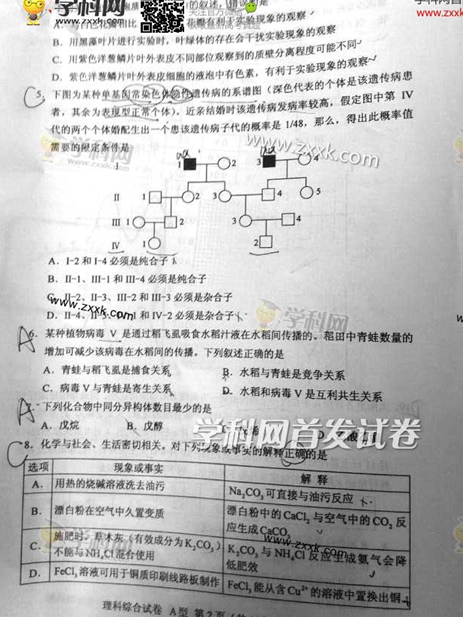 学科网
www.zxxk.com
B. 用黑藻叶片进行实验时，叶绿体的存在会干扰实验现象的观察
C. 用紫色洋葱鳞片叶外表皮不同部位观察到的质壁分离程度可能不同
D. 紫色洋葱鳞片叶外表皮细胞的液泡中有色素，有利于实验现象的观察
5. 下图为某种单基因常染色体隐性遗传病的系谱图（深色代表的个体是该遗传病患
者，其余为表现型正常个体）。近亲结婚时该遗传病发病率较高，假定图中第 IV
代的两个个体婚配生出一个患该遗传病子代的概率是 1/48，那么，得出此概率值
需要的限定条件是
I 1 2 3 4
II 1 2 3 4 5
III 1 2 3 4
IV 1 2
A. I-2 和 I-4 必须是纯合子
B. II-1、III-1 和 III-4 必须是纯合子
C. II-2、II-3、III-2 和 III-3 必须是杂合子
D. II-4、II-5、IV-1 和 IV-2 必须是杂合子
A 6. 某种植物病毒 V 是通过稻飞虱吸食水稻汁液在水稻间传播的。稻田中青蛙数量的
增加可减少该病毒在水稻间的传播。下列叙述正确的是
A. 青蛙与稻飞虱是捕食关系 B. 水稻与青蛙是竞争关系
C. 病毒 V 与青蛙是寄生关系 D. 水稻和病毒 V 是互利共生关系
A 7. 下列化合物中同分异构体数目最少的是
A. 戊烷 B. 戊醇
学科网首发试卷
C 8. 化学与社会、生活密切相关。对下列现象或事实的解释正确的是
选项 现象或事实 解释
A. 用热的烧碱溶液洗去油污 Na₂CO₃ 可直接与油污反应
B. 漂白粉在空气中久置变质 漂白粉中的 CaCl₂ 与空气中的 CO₂ 反
应生成 CaCO₃
C. 施肥时，草木灰（有效成分为 K₂CO₃）
不能与 NH₄Cl 混合使用 K₂CO₃ 与 NH₄Cl 反应生成氨气会降
低肥效
D. FeCl₃ 溶液可用于铜质印刷线路板制作 FeCl₃ 能从含 Cu²⁺ 的溶液中置换出铜
理科综合试卷 A型 第 2 页